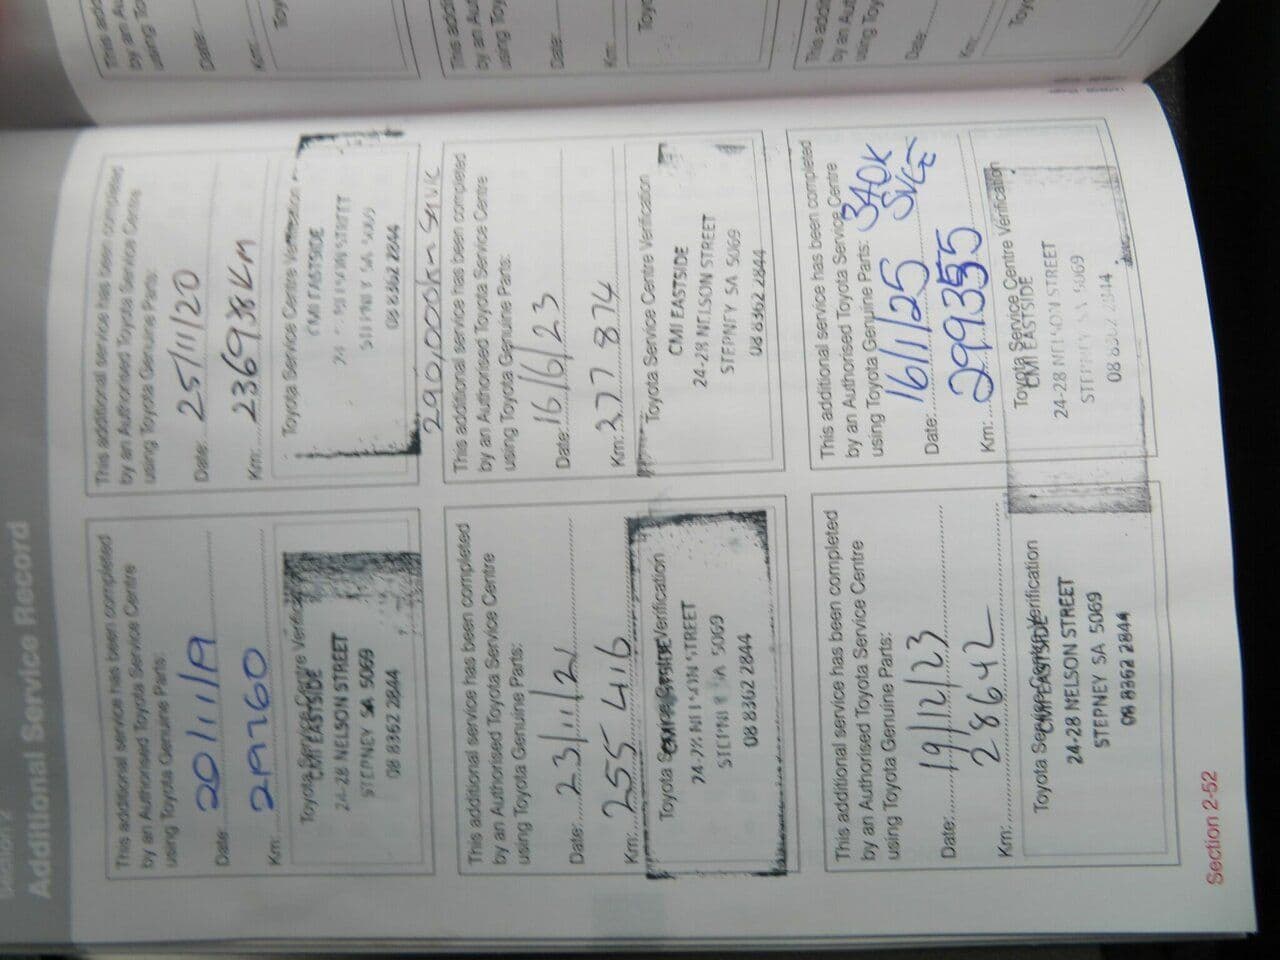 Additional Service Record
This additional service has been completed
by an Authorised Toyota Service Centre
using Toyota Genuine Parts:
Date: 20/11/19
Km:
Toyota Service Centre Verification
CMI EASTSIDE
24-28 NELSON STREET
STEPNEY SA 5069
08 8362 2844
This additional service has been completed
by an Authorised Toyota Service Centre
using Toyota Genuine Parts:
Date: 25/11/20
Km: 236938km
Toyota Service Centre Verification
CMI EASTSIDE
STEPNEY SA 5069
08 8362 2844
This additional service has been completed
by an Authorised Toyota Service Centre
using Toyota Genuine Parts:
Date: 23/11/21
Km: 255 416
Toyota Service Centre Verification
CMI EASTSIDE
24-28 NELSON STREET
STEPNEY SA 5069
08 8362 2844
290,000km
This additional service has been completed
by an Authorised Toyota Service Centre
using Toyota Genuine Parts:
Date: 16/6/23
Km: 277 874
Toyota Service Centre Verification
CMI EASTSIDE
24-28 NELSON STREET
STEPNEY SA 5069
08 8362 2844
This additional service has been completed
by an Authorised Toyota Service Centre
using Toyota Genuine Parts:
Date: 19/12/23
Km: 28642
Toyota Service Centre Verification
CMI EASTSIDE
24-28 NELSON STREET
STEPNEY SA 5069
08 8362 2844
This additional service has been completed
by an Authorised Toyota Service Centre
using Toyota Genuine Parts: 340K
Date: 16/1/25 SVCE
Km: 299355
Toyota Service Centre Verification
CMI EASTSIDE
24-28 NELSON STREET
STEPNEY SA 5069
08 8362 2844
Section 2-52